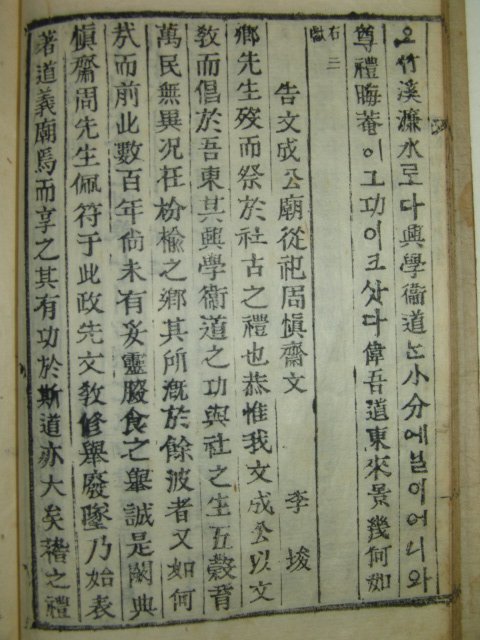 오竹溪濂水로다興學衛道는小分에닐이어니와
尊禮晦菴이그功이크샷다偉吾道東來景幾何如
右三獻
告文成公廟從祀周愼齋文 李埈
鄕先生歿而祭於社古之禮也恭惟我文成公以文
敎而倡於吾東其興學衛道之功與社之生五穀育
萬民無異況在枌楡之鄕其所漑於餘波者又如何
㢤而前此數百年尙未有妥靈腏食之擧誠是闕典
愼齋周先生佩符于此政先文敎修擧廢墜乃始表
著道義廟焉而享之其有功於斯道亦大矣稽之禮